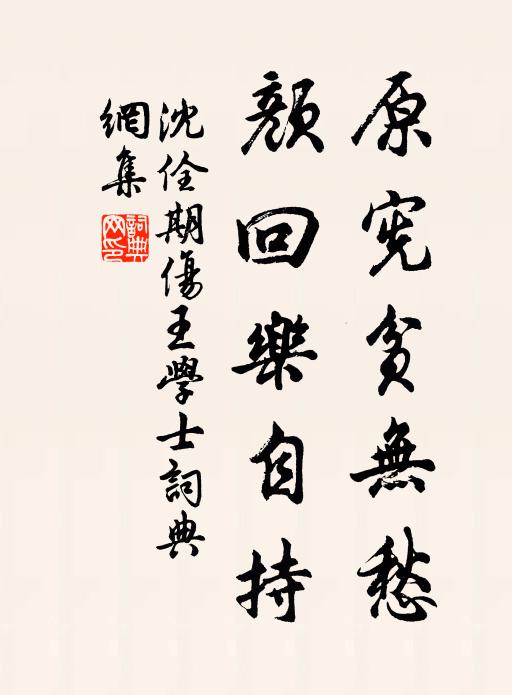 原宪貧無愁
顏回樂自持
沈佺期傷王學士詞典
網集
詞典
网印